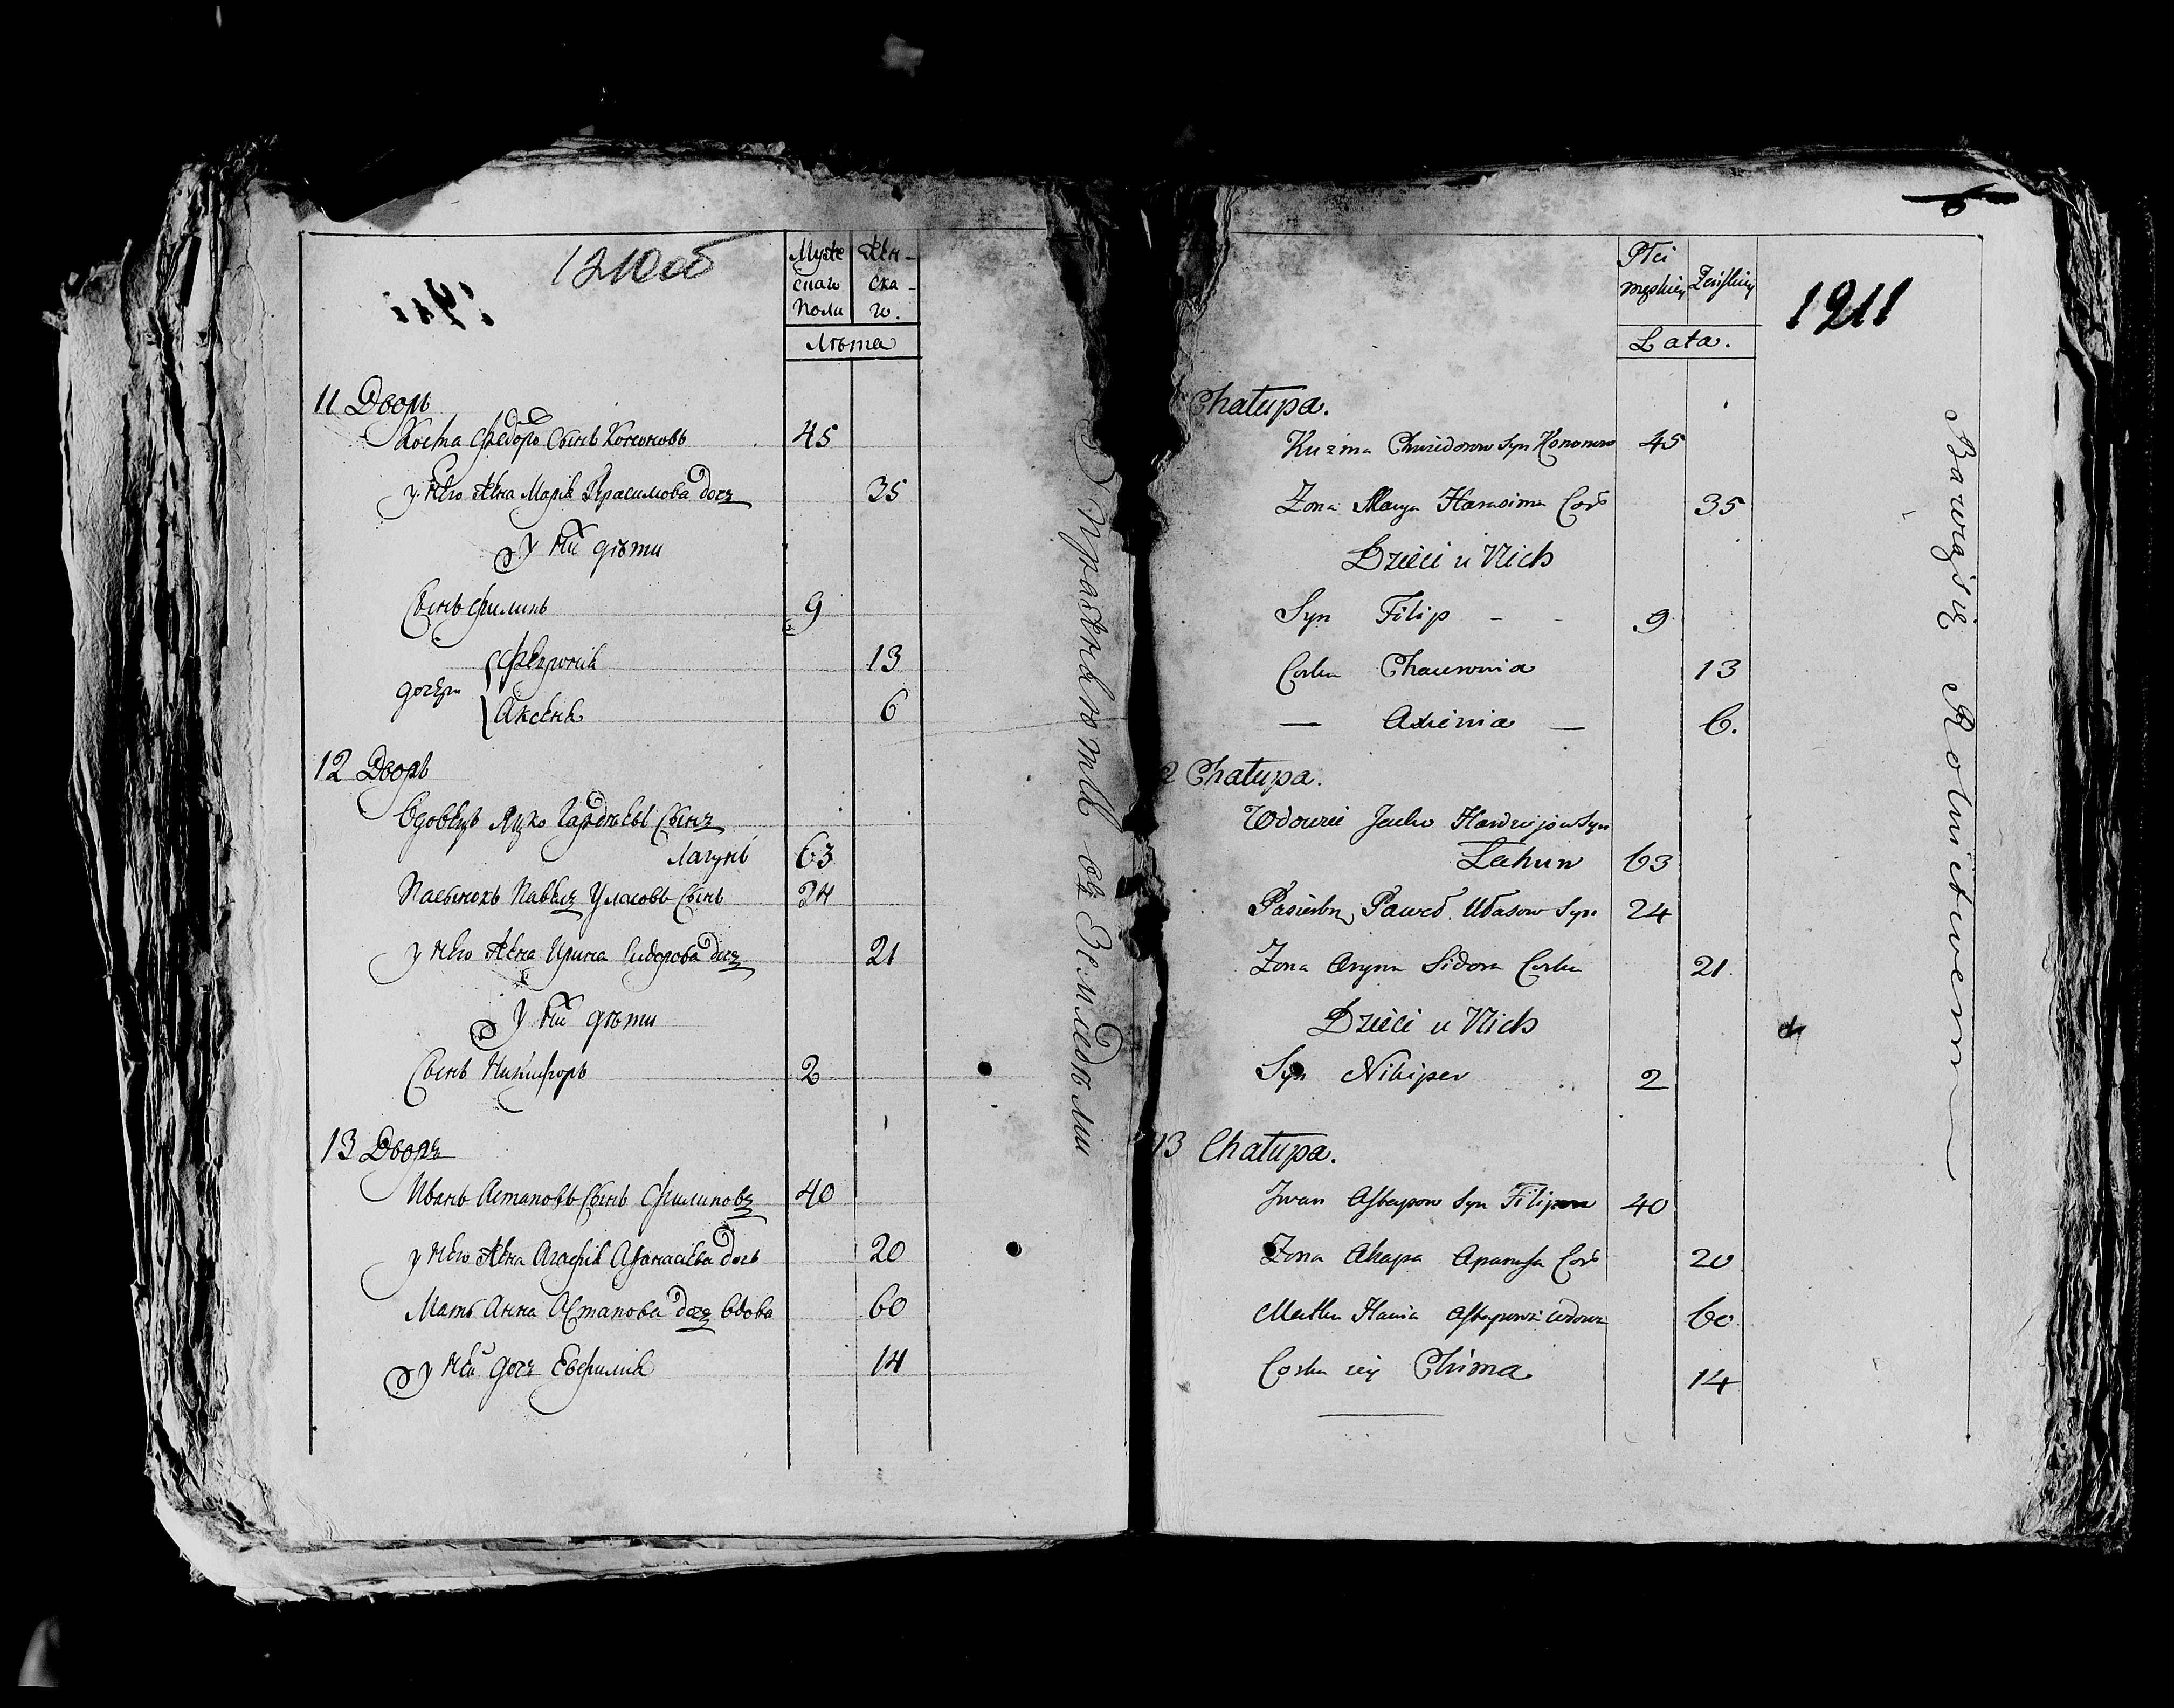 1210об
Муже
скаго
пола
Жен-
ска-
го.
Лѣта
11 Дворъ
Косма Федоръ Сынъ Кононовъ 45
у него жена Марія Герасимова дочь 35
У ней дѣти
Сынъ Филипъ 9
дочери Февронія 13
Аксенія 6
12 Дворъ
Вдовецъ Яцко Гардѣевъ Сынъ
Лагунъ 63
Пасынокъ Павелъ Уласовъ Сынъ 24
у него жена Ирина Сидорова дочь 21
У ней дѣти
Сынъ Никифоръ 2
13 Дворъ
Иванъ Астаповъ Сынъ Филиповъ 40
у него жена Агафія Афанасіева дочь 20
Мать Анна Астапова дочь вдова 60
у ней дочь Евфимія 14
Упражняются въ Земледѣліи
6
1211
Płci
męskiey
Żeńskiey
Lata.
Chałupa.
Kuzma Chwiedorow Syn Kononow 45
Żona Marya Harasima Cor 35
Dzieci u Nich
Syn Filip - - 9
Corka Chauronia 13
— Axienia — 6.
2 Chałupa.
Wdowiec Jacko Hardziejow Syn
Łahun 63
Pasierb Paweł Ułasow Syn 24
Żona Aryna Sidora Corka 21
Dzieci u Nich
Syn Nikiper 2
13 Chałupa.
Jwan Astapow Syn Filipow 40
Żona Ahapa Apanasa Cor 20
Matka Hania Astapowa wdowa 60
Corka iey Chima 14
Bawią się Rolnictwem